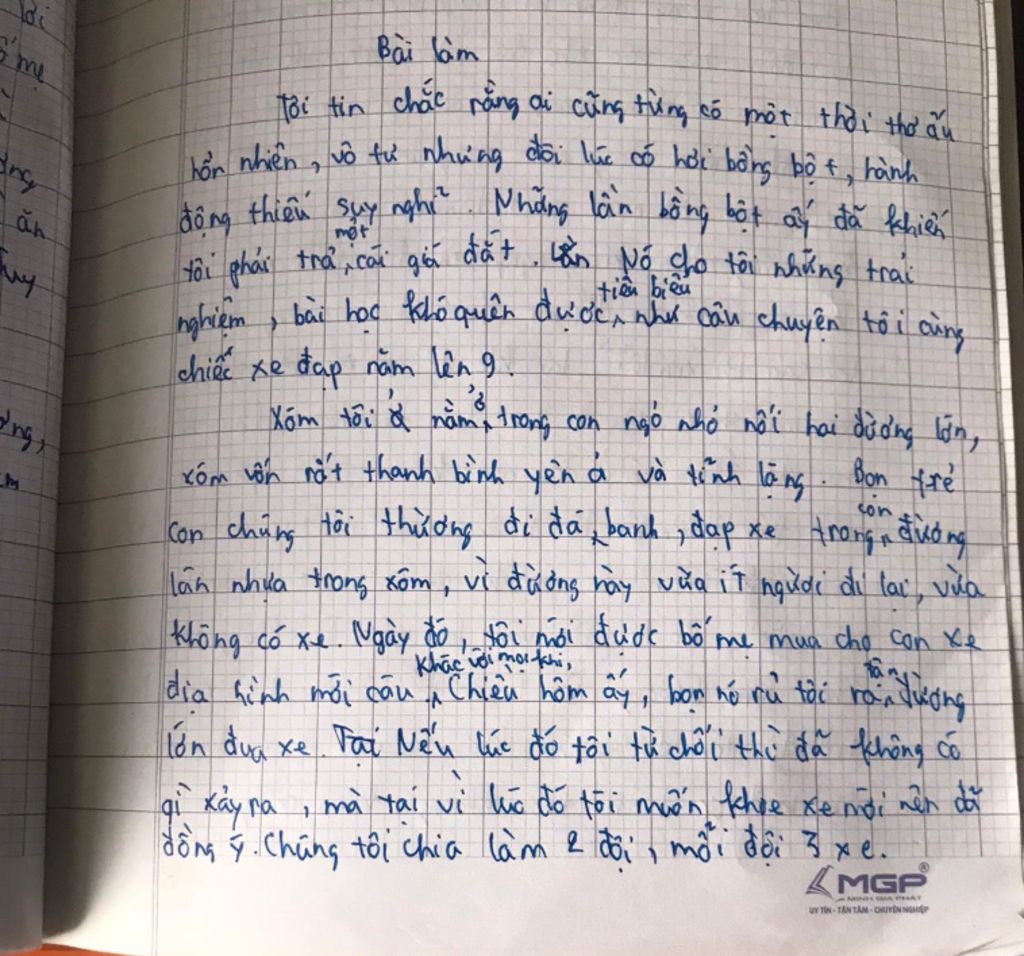 lời
ố mẹ
ăn
huy
Bài làm
Tôi tin chắc rằng ai cũng từng có một thời thơ ấu
hồn nhiên, vô tư nhưng đôi lúc có hơi bồng bột, hành
động thiếu suy nghĩ. Những lần bồng bột ấy đã khiến
một
tôi phải trả cái giá đắt. Nó cho tôi những trải
tiêu biểu
nghiệm, bài học khó quên được như câu chuyện tôi cùng
chiếc xe đạp năm lên 9.
ở
Xóm tôi nằm trong con ngõ nhỏ nối hai đường lớn,
xóm vốn rất thanh bình yên ả và tĩnh lặng. Bọn trẻ
con
con chúng tôi thường đi đá banh, đạp xe trong đường
lăn nhựa trong xóm, vì đường này vừa ít người đi lại, vừa
không có xe. Ngày đó, tôi mới được bố mẹ mua cho con xe
Khác với mọi khi,
tận
địa hình mới cáu. Chiều hôm ấy, bọn nó rủ tôi ra đường
lớn đua xe. Tại Nếu lúc đó tôi từ chối thì đã không có
gì xảy ra, mà tại vì lúc đó tôi muốn khoe xe mới nên đã
đồng ý. Chúng tôi chia làm 2 đội, mỗi đội 3 xe.
MGP®
MINH GIA PHÁT
UY TÍN - TẬN TÂM - CHUYÊN NGHIỆP